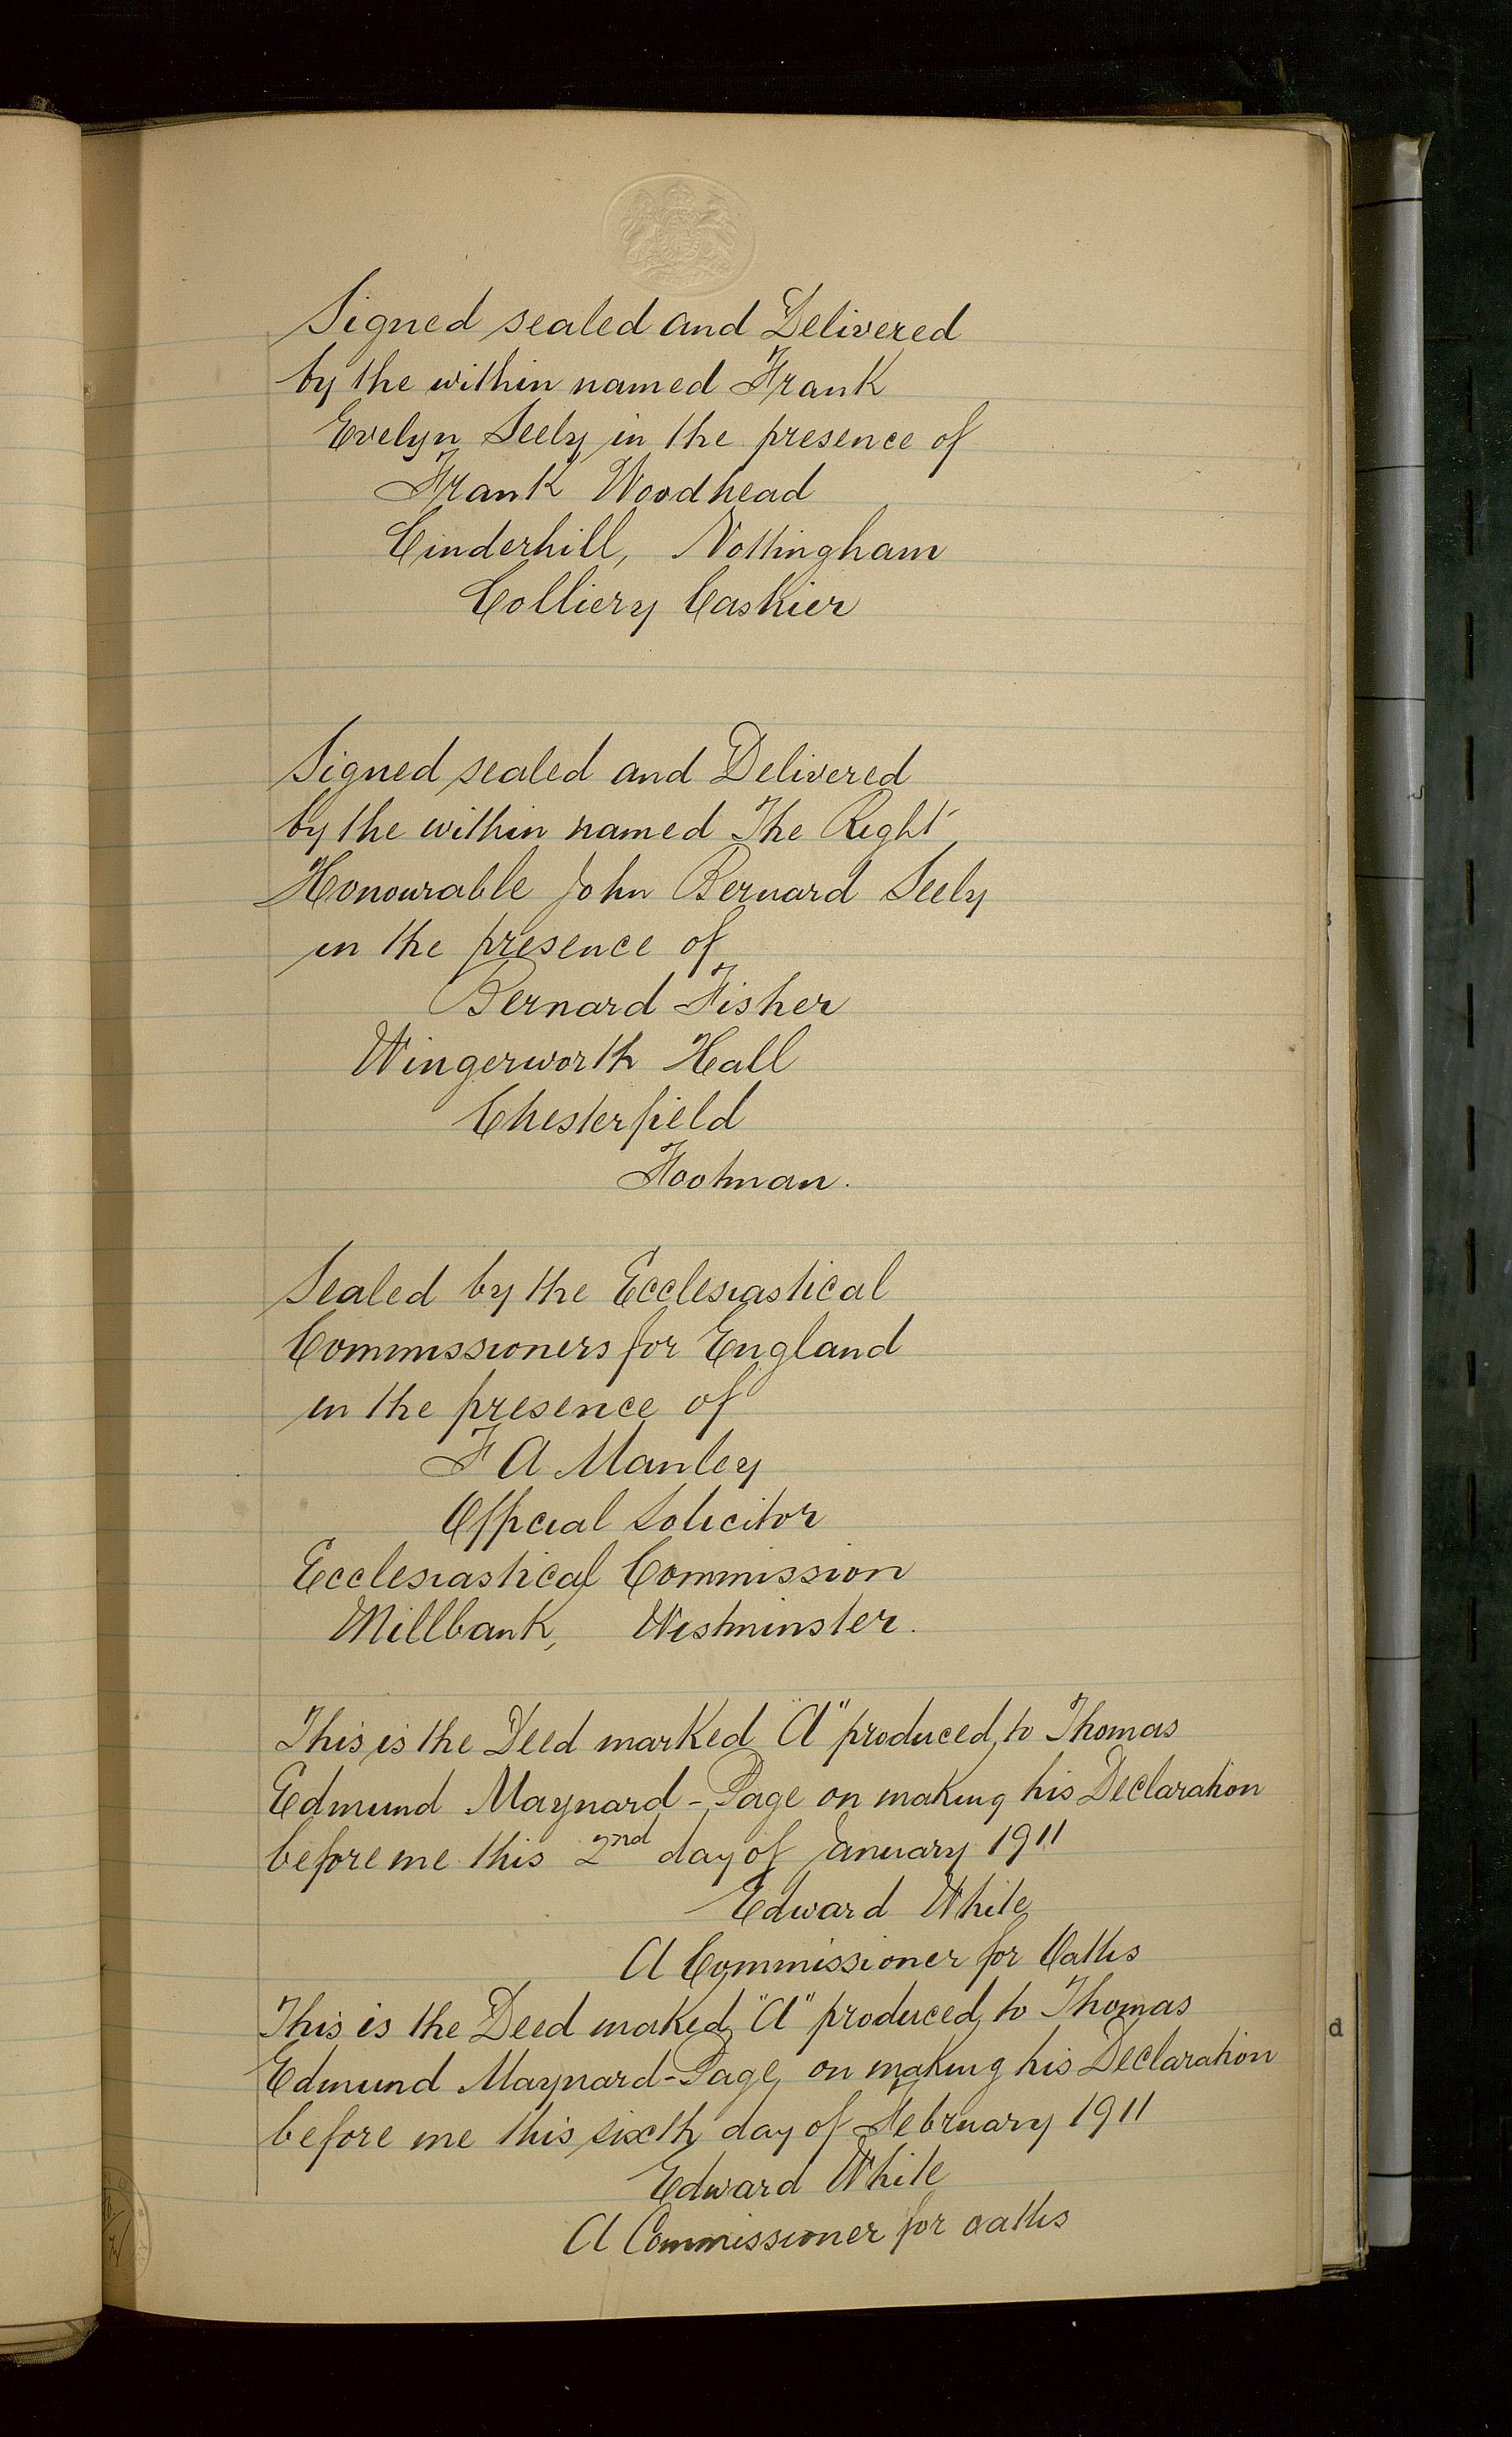 Signed sealed and Delivered
by the within named Frank
Evelyn Seely in the presence of
Frank Woodhead
Cinderhill, Nottingham
Colliery Cashier
Signed sealed and Delivered
by the within named The Right
Honourable John Bernard Seely
in the presence of
Bernard Fisher
Wingerworth Hall
Chesterfield
Footman.
Sealed by the Ecclesiastical
Commissioners for England
in the presence of
F A Manley
Official Solicitor
Ecclesiastical Commission
Millbank, Westminster.
This is the Deed marked "A" produced to Thomas
Edmund Maynard-Page on making his Declaration
before me this 2nd day of January 1911
Edward White
A Commissioner for Oaths
This is the Deed maked "A" produced to Thomas
Edmund Maynard-Page on making his Declaration
before me this sixth day of February 1911
Edward White
A Commissioner for oaths
d